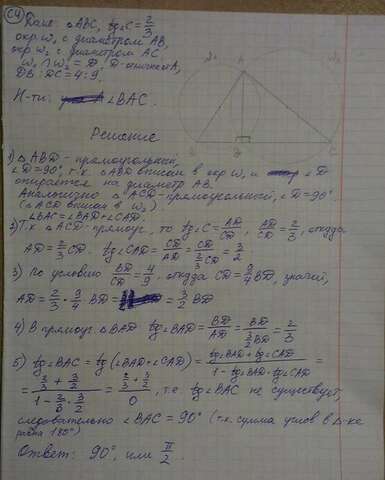 C4 Дано: △ABC, tg∠C = 2/3
окр w₁ с диаметром AB,
окр w₂ с диаметром AC,
w₁ ∩ w₂ = D, D - отлично от A,
DB : DC = 4 : 9.
Н-ти: ∠BAC.
Решение
1) △ABD - прямоугольный,
∠D = 90°, т.к. △ABD вписан в окр w₁ и ∠D
опирается на диаметр AB.
Аналогично △ACD - прямоугольный, ∠D = 90°
(△ACD вписан в w₂)
∠BAC = ∠BAD + ∠CAD.
2) Т.к. △ACD - прямоуг, то tg∠C = AD/CD, AD/CD = 2/3, откуда
AD = 2/3 CD. tg∠CAD = CD/AD = CD/(2/3 CD) = 3/2
3) По условию BD/CD = 4/9, откуда CD = 9/4 BD, значит,
AD = 2/3 · 9/4 BD = 3/2 BD
4) В прямоуг. △BAD tg∠BAD = BD/AD = BD/(3/2 BD) = 2/3
5) tg∠BAC = tg(∠BAD + ∠CAD) = (tg∠BAD + tg∠CAD)/(1 - tg∠BAD · tg∠CAD) =
= (2/3 + 3/2)/(1 - 2/3 · 3/2) = (2/3 + 3/2)/0, т.е. tg∠BAC не существует,
следовательно ∠BAC = 90° (т.к. сумма углов в △-ке
равна 180°)
Ответ: 90°, или π/2.